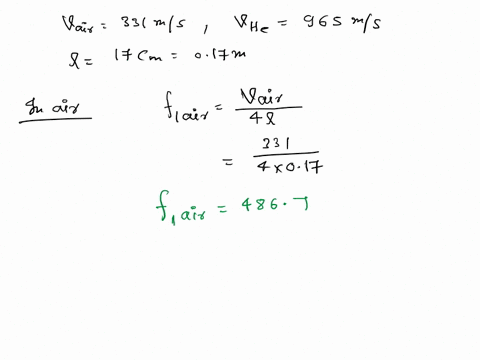 Vair = 331 m/s , VHe = 965 m/s
l = 17 cm = 0.17 m
In air
f1air = Vair / 4l
= 331 / 4×0.17
f1air = 486.7